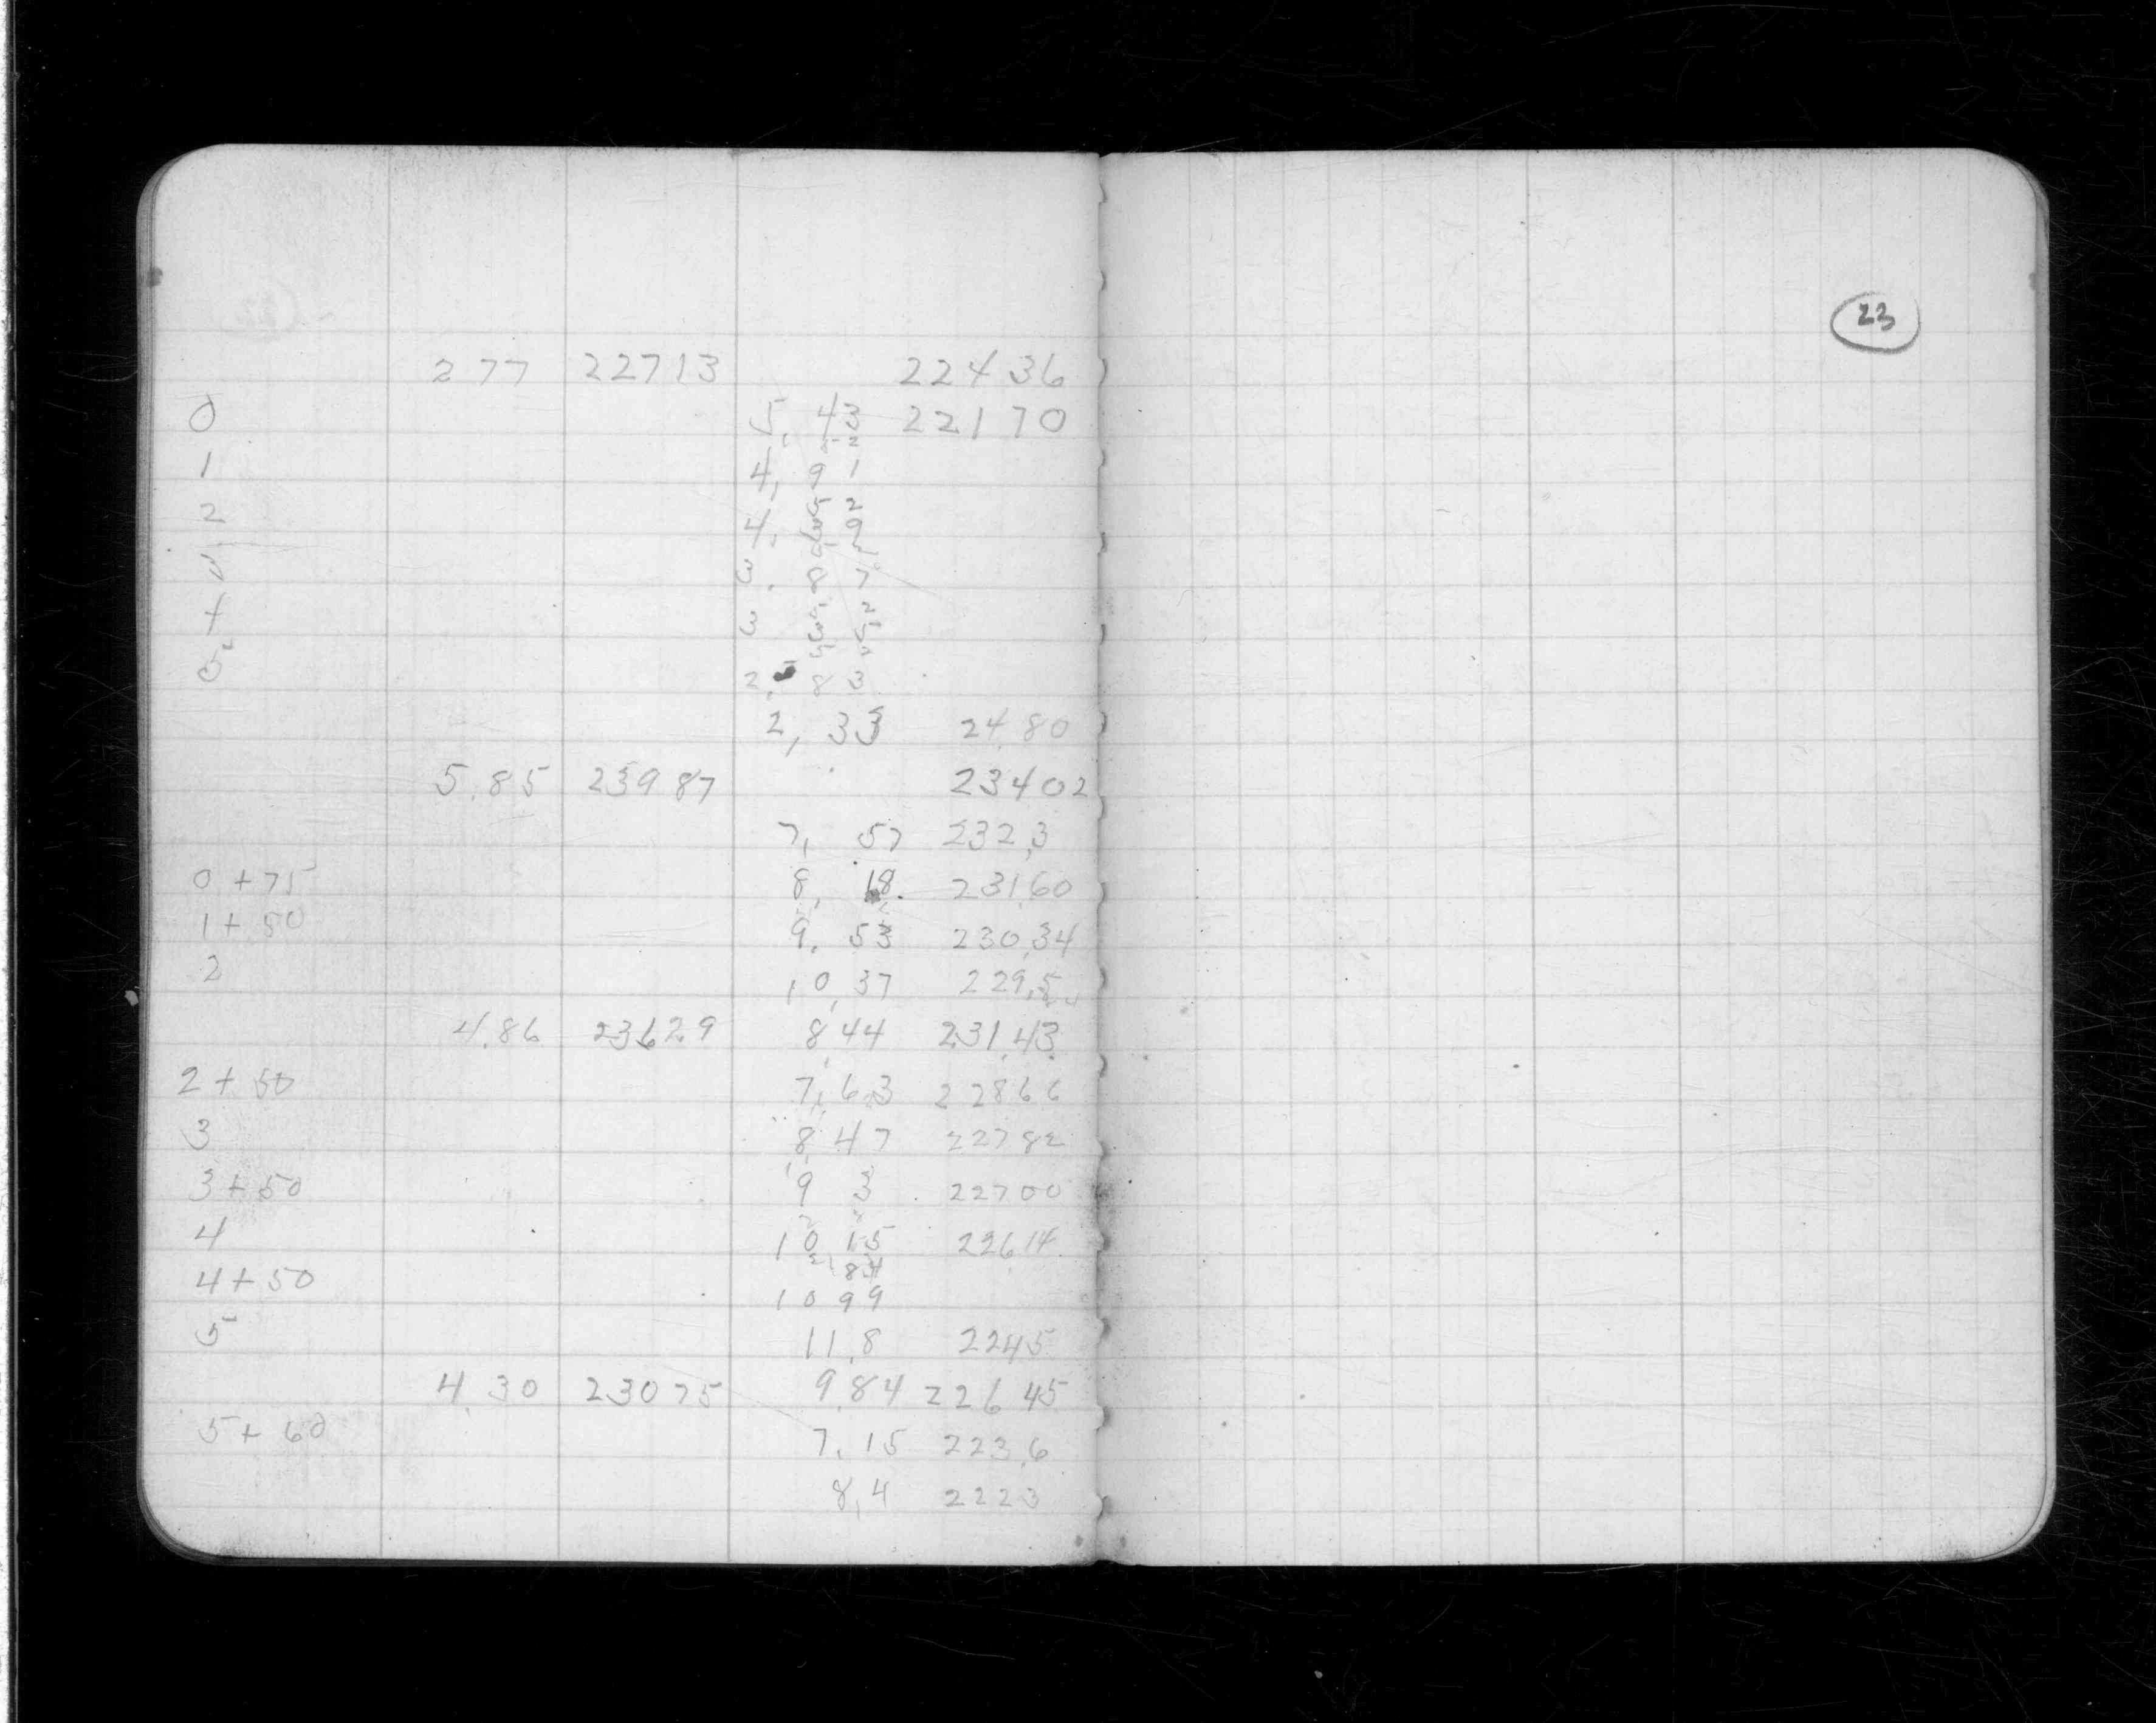 23
2 77 22713 22436
0 5. 43 22170
5 2
1 4, 9 1
5 2
2 4.
3. 8 7
4 3
5 2. 8 3
2, 33 24 80
5.85 23987 23402
7, 57 232,3
0 + 75 8. 18. 231,60
1 + 50 9. 53 230,34
2 10,37 229,5
4.86 23629 8,44 231,43
2 + 50 7,63 22866
3 8 47 22782
3 + 50 9 3 22700
4 10 15 22614
84
4 + 50 10 99
5 11,8 2245
4 30 23075 9.84 226 45
5 + 60 7. 15 223,6
8,4 2223